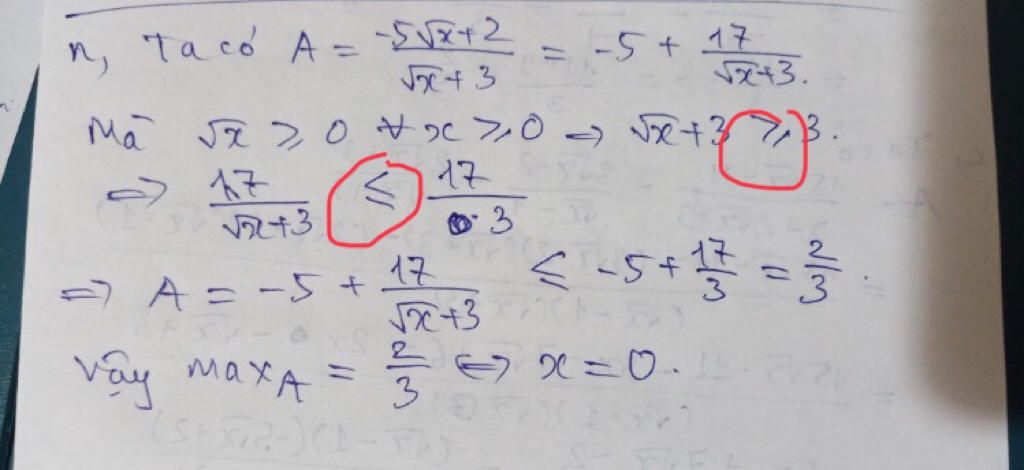 n, Ta có A = \frac{-5\sqrt{x}+2}{\sqrt{x}+3} = -5 + \frac{17}{\sqrt{x}+3}.
Mà \sqrt{x} ⩾ 0 ∀ x ⩾ 0 ⇒ \sqrt{x}+3 ⩾ 3.
⇒ \frac{17}{\sqrt{x}+3} ≤ \frac{17}{3}
⇒ A = -5 + \frac{17}{\sqrt{x}+3} ≤ -5 + \frac{17}{3} = \frac{2}{3}.
Vậy max_A = \frac{2}{3} ⇔ x = 0.